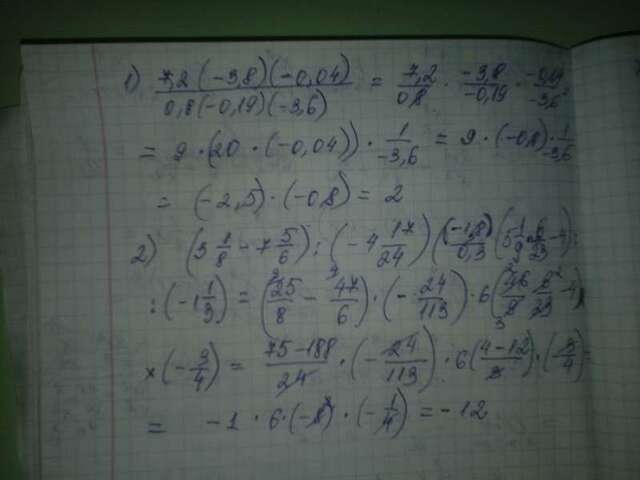 1) 7,2(-3,8)(-0,04) / 0,8(-0,19)(-3,6) = 7,2/0,8 · -3,8/-0,19 · -0,04/-3,6
= 9 · (20 · (-0,04)) · 1/-3,6 = 9 · (-0,8) · 1/-3,6
= (-2,5) · (-0,8) = 2
2) (3 1/8 - 7 5/6) : (-4 17/24) (-1,8)/0,3 (5 1/9 · 6/23 - 4) :
: (-1 1/3) = (25/8 - 47/6) · (-24/113) · 6 (46/9 · 6/23 - 4)
× (-3/4) = 75-188/24 · (-24/113) · 6 (4-12/3) · (-3/4) =
= -1 · 6 · (-8) · (-1/4) = -12